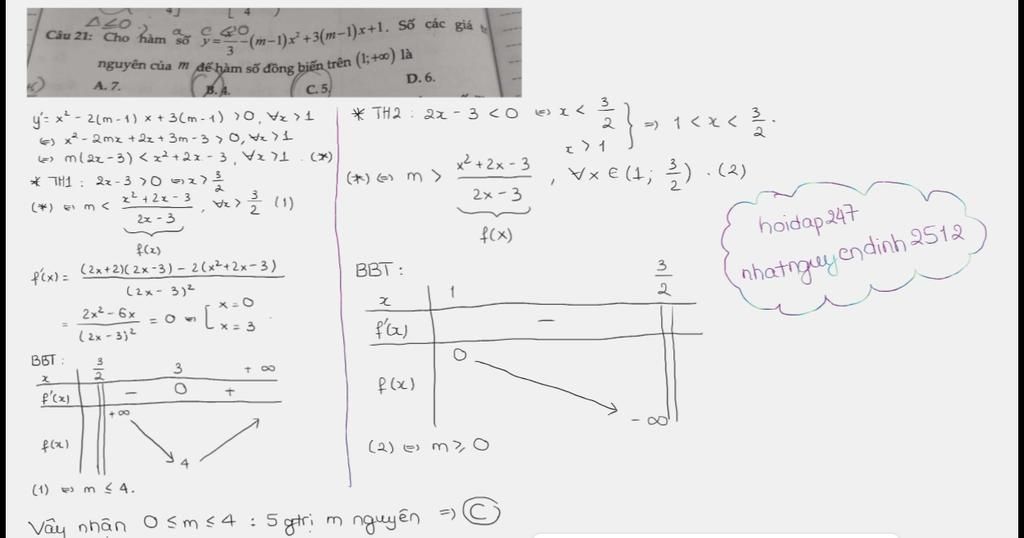 Δ≤0
Câu 21: Cho hàm số y = x³/3 - (m-1)x² + 3(m-1)x + 1. Số các giá trị
nguyên của m để hàm số đồng biến trên (1;+∞) là
A. 7. B. 4. C. 5. D. 6.
y' = x² - 2(m-1)x + 3(m-1) > 0, ∀x > 1
⇔ x² - 2mx + 2x + 3m - 3 > 0, ∀x > 1
⇔ m(2x-3) < x² + 2x - 3, ∀x > 1. (*)
* TH1: 2x - 3 > 0 ⇔ x > 3/2
(*) ⇔ m < (x² + 2x - 3)/(2x - 3), ∀x > 3/2 (1)
f(x)
f'(x) = ((2x+2)(2x-3) - 2(x²+2x-3))/(2x-3)²
= (2x² - 6x)/(2x-3)² = 0 ⇔ [x = 0
x = 3
BBT:
x 3/2 3 +∞
f'(x) - 0 +
f(x) +∞ 4
(1) ⇔ m ≤ 4.
* TH2: 2x - 3 < 0 ⇔ x < 3/2
x > 1 } ⇒ 1 < x < 3/2.
(*) ⇔ m > (x² + 2x - 3)/(2x - 3), ∀x ∈ (1; 3/2). (2)
f(x)
BBT:
x 1 3/2
f'(x) -
f(x) 0 -∞
(2) ⇔ m ≥ 0
Vậy nhận 0 ≤ m ≤ 4 : 5 gtrị m nguyên ⇒ C
hoidap247
nhatnguyendinh2512